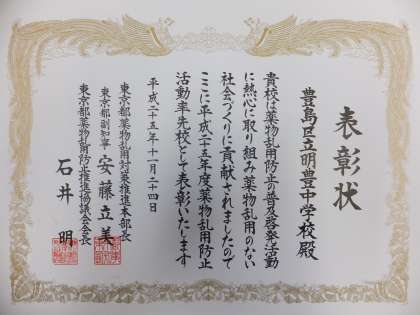 表彰状
豊島区立明豊中学校殿
貴校は薬物乱用防止の普及啓発活動
に熱心に取り組み薬物乱用のない
社会づくりに貢献されましたので
ここに平成二十五年度薬物乱用防止
活動率先校として表彰いたします
平成二十五年十一月二十四日
東京都薬物乱用対策推進本部長
東京都副知事 安藤立美
東京都薬物乱用防止推進協議会会長
石井 明